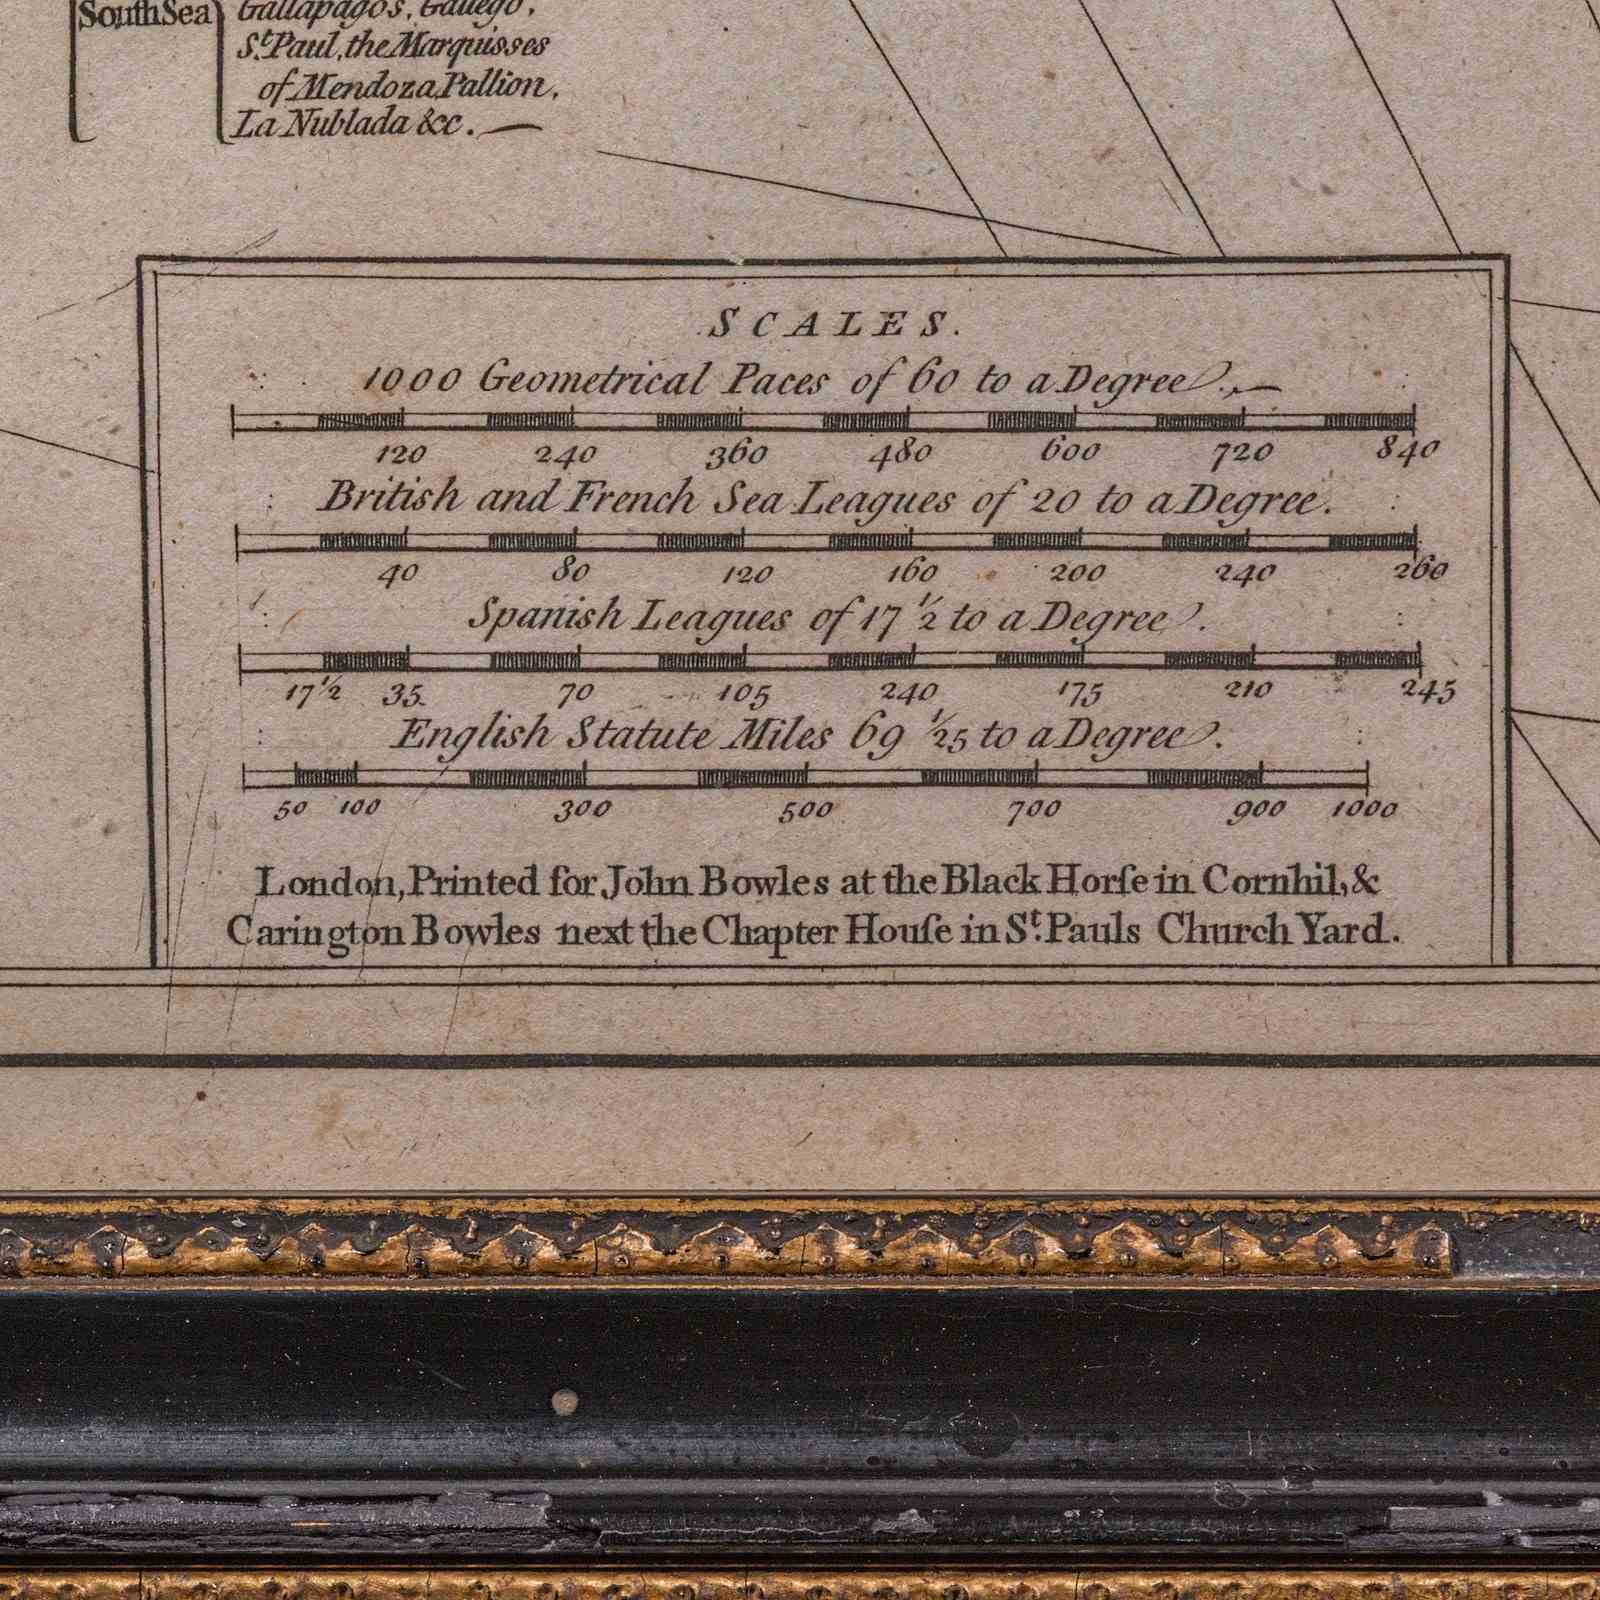 South Sea
Gallapagos, Gallego,
St. Paul, the Marquisses
of Mendoza, Pallion,
La Nublada &c.
SCALES.
1000 Geometrical Paces of 60 to a Degree.
120 240 360 480 600 720 840
British and French Sea Leagues of 20 to a Degree.
40 80 120 160 200 240 260
Spanish Leagues of 17 1/2 to a Degree.
17 1/2 35. 70 105 240 175 210 245
English Statute Miles 69 1/25 to a Degree.
50 100 300 500 700 900 1000
London, Printed for John Bowles at the Black Horſe in Cornhil, &
Carington Bowles next the Chapter Houſe in St. Pauls Church Yard.